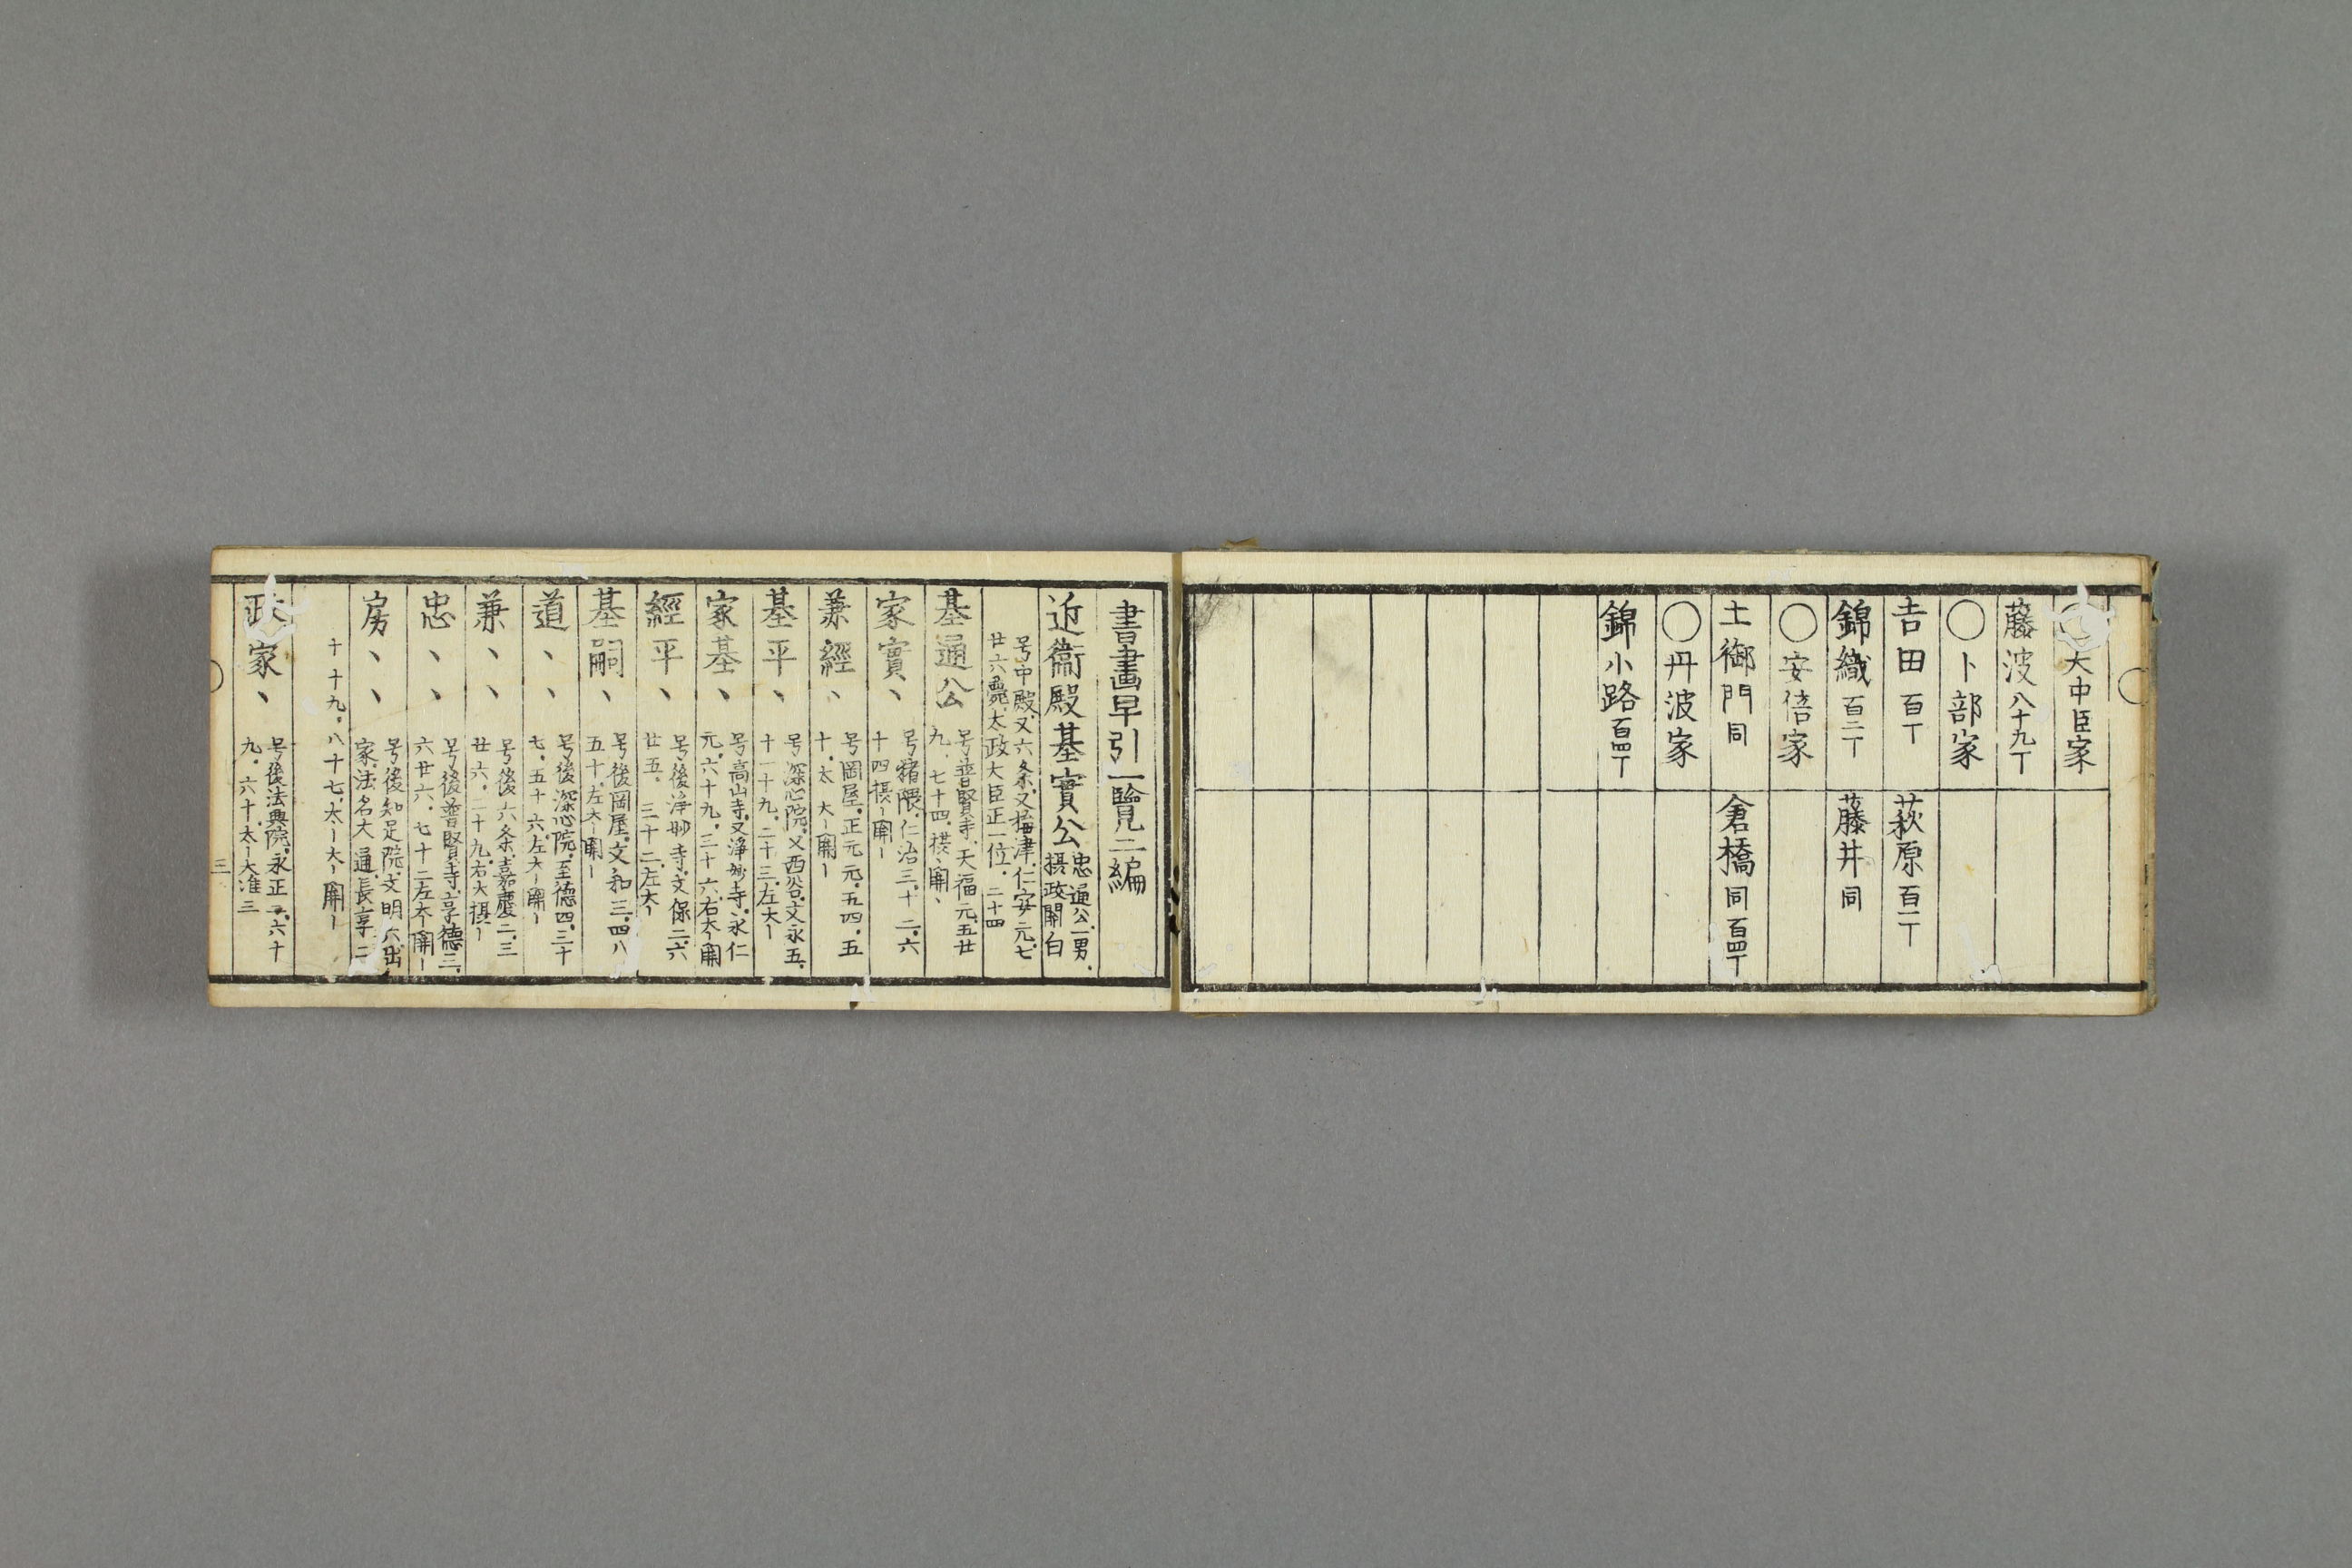 大中臣家
藤波 八十九丁
〇卜部家
吉田 百丁
萩原 百一丁
錦織 百二丁
藤井 同
〇安倍家
土御門 同
倉橋 同 百四丁
〇丹波家
錦小路 百四丁
書畫早引一覽二編
近衞殿基實公 忠通公二男、
攝政關白
号中殿、又六条、又梅津、仁安元、七
廿六薨、太政大臣正一位、二十四
基通公 号普賢寺、天福元、五廿
九、七十四、摂、関、
家實、 号猪隈、仁治三、十二、六
十四摂ー関ー
兼經、 号岡屋、正元元、五四、五
十、太大ー関ー
基平、 号深心院、又西谷、文永五、
十一十九、二十三、左大ー
家基、 号高山寺、又淨妙寺、永仁
元、六十九、三十六、右大ー関
經平、 号後淨妙寺、文保二、六
廿五、三十二、左大ー
基嗣、 号後岡屋、文和三、四八
五十、左大ー関ー
道、、 号後深心院、至德四、三十
七、五十六、左大ー関ー
兼、、 号後六条、嘉慶二、三
廿六、二十九、右大摂ー
忠、、 号後普賢寺、享德三、
六廿六、七十二、左大ー関ー
房、、 号後知足院、文明六、出
家、法名大通、長享二
十十九、八十七、太ー大ー関ー
政家、 号後法興院、永正二、六十
九、六十、太ー大准三
三